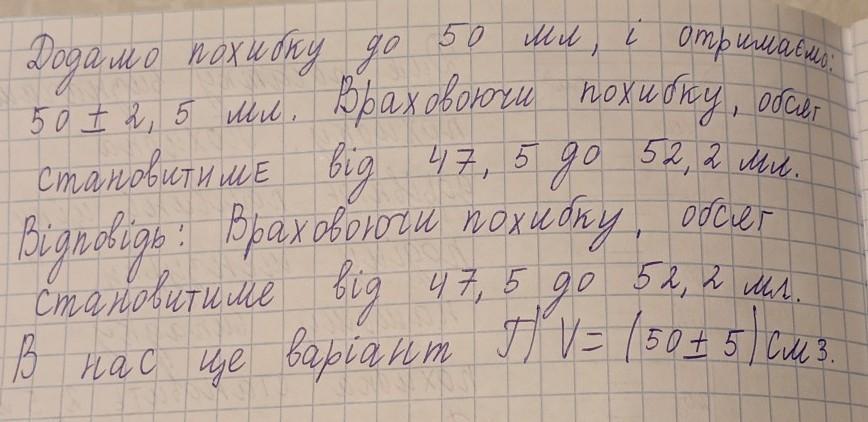 Додамо похибку до 50 мл, і отримаємо:
50 ± 2,5 мл. Враховоючи похибку, обсяг
становитиме від 47,5 до 52,2 мл.
Відповідь: Враховоючи похибку, обсяг
становитиме від 47,5 до 52,2 мл.
В нас це варіант Г) V = (50 ± 5) см3.